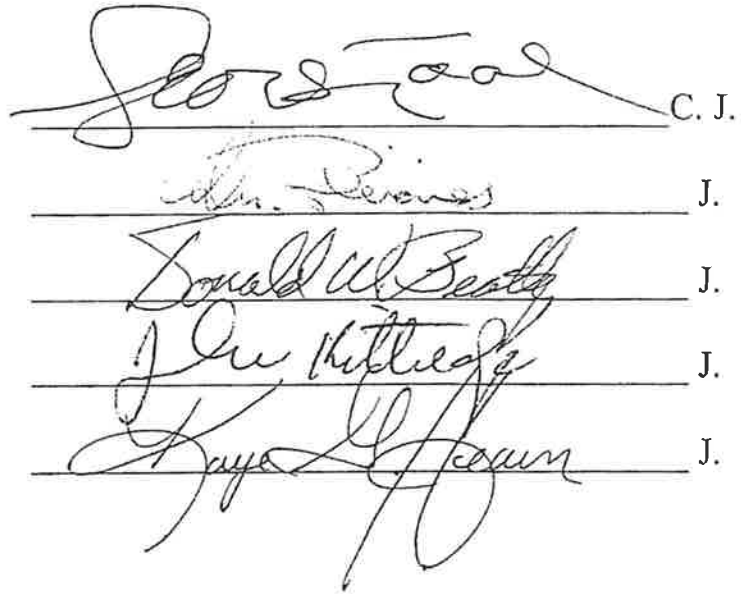 Toal C. J.
J.
Donald W. Beatty J.
John Kittredge J.
Kaye G. Hearn J.